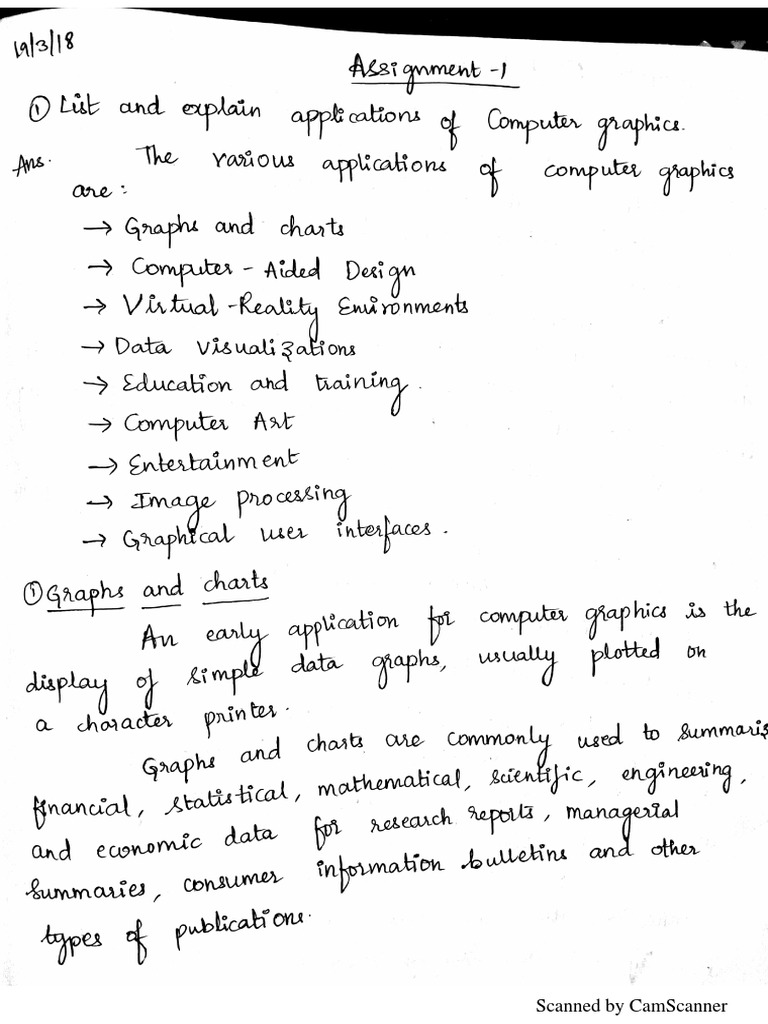 19/3/18
Assignment -1
① List and explain applications of Computer graphics.
Ans. The various applications of computer graphics
are:
→ Graphs and charts
→ Computer - Aided Design
→ Virtual -Reality Environments
→ Data visualizations
→ Education and training.
→ Computer Art
→ Entertainment
→ Image processing
→ Graphical user interfaces.
① Graphs and charts
An early application for computer graphics is the
display of simple data graphs, usually plotted on
a character printer.
Graphs and charts are commonly used to summaris
financial, statistical, mathematical, scientific, engineering,
and economic data for research reports, managerial
summaries, consumer information bulletins and other
types of publications.
Scanned by CamScanner